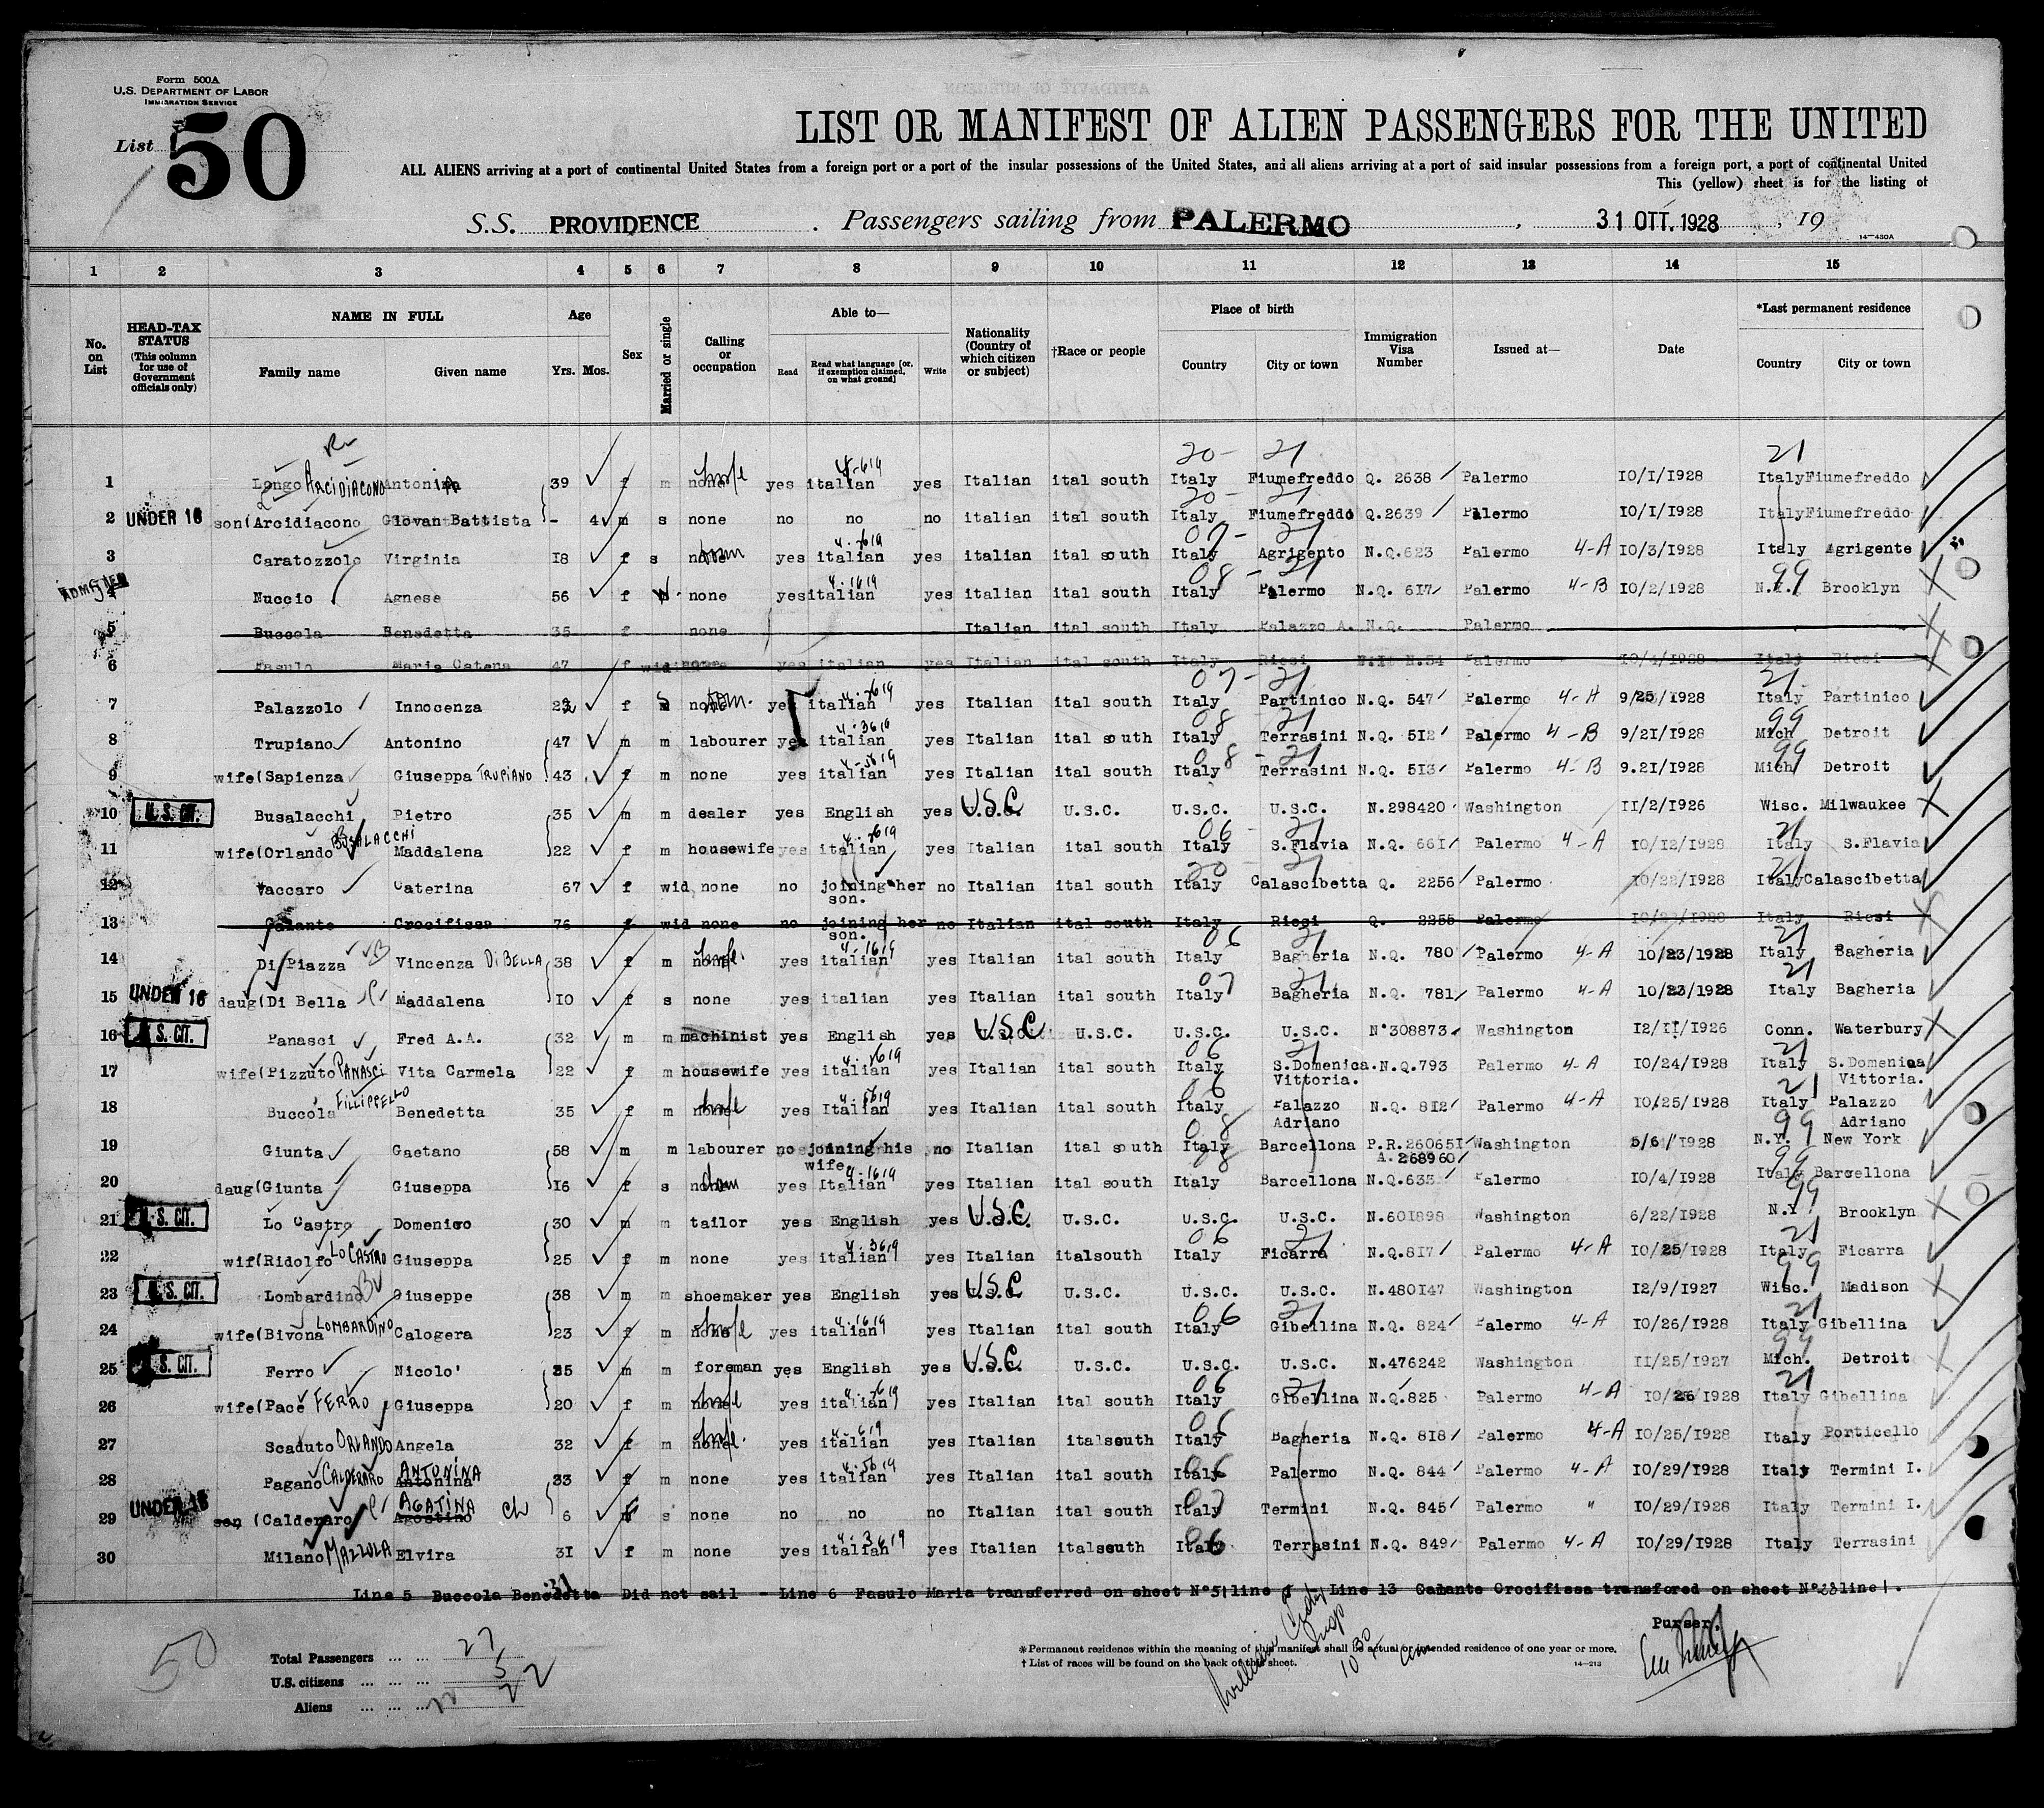 Form 500A
U.S. DEPARTMENT OF LABOR
IMMIGRATION SERVICE
List 50
LIST OR MANIFEST OF ALIEN PASSENGERS FOR THE UNITED
ALL ALIENS arriving at a port of continental United States from a foreign port or a port of the insular possessions of the United States, and all aliens arriving at a port of said insular possessions from a foreign port, a port of continental United
This (yellow) sheet is for the listing of
S.S. PROVIDENCE . Passengers sailing from PALERMO , 31 OTT. 1928 , 19
14—430A
1 2 3 4 5 6 7 8 9 10 11 12 13 14 15
No. on List
HEAD-TAX STATUS (This column for use of Government officials only)
NAME IN FULL Family name Given name
Age Yrs. Mos.
Sex
Married or single
Calling or occupation
Able to— Read Read what language (or, if exemption claimed, on what ground) Write
Nationality (Country of which citizen or subject)
†Race or people
Place of birth Country City or town
Immigration Visa Number
Issued at—
Date
*Last permanent residence Country City or town
1 Longo ARCIDIACONO Antonina 39 f m none yes italian yes Italian ital south Italy Fiumefreddo Q. 2638 Palermo 10/1/1928 Italy Fiumefreddo
2 UNDER 16 son(Arcidiacono Giovan Battista - 4 m s none no no no italian ital south Italy Fiumefreddo Q.2639 Palermo 10/1/1928 Italy Fiumefreddo
3 Caratozzolo Virginia 18 f s none yes italian yes italian ital south Italy Agrigento N.Q.623 Palermo 4-A 10/3/1928 Italy Agrigente
ADMITTED Nuccio Agnese 56 f none yes italian yes italian ital south Italy Palermo N.Q. 617 Palermo 4-B 10/2/1928 N.Y. Brooklyn
5 Buccola Benedetta 35 f none Italian ital south Italy Palazzo A. N.Q. Palermo
6 Fasulo Maria Catena 47 f wid none yes italian yes Italian ital south Italy Riesi N. 54 Palermo 10/4/1928 Italy Riesi
7 Palazzolo Innocenza 22 f s none yes italian yes Italian ital south Italy Partinico N.Q. 547 Palermo 4-A 9/25/1928 Italy Partinico
8 Trupiano Antonino 47 m m labourer yes italian yes Italian ital south Italy Terrasini N.Q. 512 Palermo 4-B 9/21/1928 Mich Detroit
9 wife(Sapienza Giuseppa TRUPIANO 43 f m none yes italian yes Italian ital south Italy Terrasini N.Q. 513 Palermo 4-B 9.21/1928 Mich Detroit
10 U.S. CIT. Busalacchi Pietro 35 m m dealer yes English yes U.S.C U.S.C. U.S.C. U.S.C. N.298420 Washington 11/2/1926 Wisc. Milwaukee
11 wife(Orlando BUSALACCHI Maddalena 22 f m housewife yes italian yes Italian ital south Italy S.Flavia N.Q. 661 Palermo 4-A 10/12/1928 Italy S.Flavia
12 Vaccaro Caterina 67 f wid none no joining her son. no Italian ital south Italy Calascibetta Q. 2256 Palermo 10/22/1928 Italy Calascibetta
13 Galante Crocifissa 76 f wid none no joining her son. no Italian ital south Italy Riesi Q. 2255 Palermo 1928 Italy Riesi
14 Di Piazza Vincenza DI BELLA 38 f m none yes italian yes Italian ital south Italy Bagheria N.Q. 780 Palermo 4-A 10/23/1928 Italy Bagheria
15 UNDER 16 daug(Di Bella Maddalena 10 f s none yes italian yes Italian ital south Italy Bagheria N.Q. 781 Palermo 4-A 10/23/1928 Italy Bagheria
16 U.S. CIT. Panasci Fred A.A. 32 m m machinist yes English yes U.S.C U.S.C. U.S.C. U.S.C. N°308873 Washington 12/11/1926 Conn. Waterbury
17 wife(Pizzuto PANASCI Vita Carmela 22 f m housewife yes italian yes Italian ital south Italy S.Domenica Vittoria. N.Q.793 Palermo 4-A 10/24/1928 Italy S.Domenica Vittoria.
18 Buccola FILLIPPELLO Benedetta 35 f m none yes Italian yes Italian ital south Italy Palazzo Adriano N.Q. 812 Palermo 4-A 10/25/1928 Italy Palazzo Adriano
19 Giunta Gaetano 58 m m labourer no joining his wife no Italian ital south Italy Barcellona P.R.260651 A.268960 Washington 5/6/1928 N.Y. New York
20 daug(Giunta Giuseppa 16 f s none yes Italian yes Italian ital south Italy Barcellona N.Q.633 Palermo 10/4/1928 Italy Barcellona
21 U.S. CIT. Lo Castro Domenico 30 m m tailor yes English yes U.S.C. U.S.C. U.S.C. U.S.C. N.601898 Washington 6/22/1928 N.Y Brooklyn
22 wif(Ridolfo LO CASTRO Giuseppa 25 f m none yes italian yes Italian italsouth Italy Ficarra N.Q.817 Palermo 4-A 10/25/1928 Italy Ficarra
23 U.S. CIT. Lombardino Giuseppe 38 m m shoemaker yes English yes U.S.C U.S.C. U.S.C. U.S.C. N.480147 Washington 12/9/1927 Wisc. Madison
24 wife(Bivona LOMBARDINO Calogera 23 f m none yes italian yes Italian ital south Italy Gibellina N.Q. 824 Palermo 4-A 10/26/1928 Italy Gibellina
25 U.S. CIT. Ferro Nicolo' 35 m m foreman yes English yes U.S.C. U.S.C. U.S.C. U.S.C. N.476242 Washington 11/25/1927 Mich. Detroit
26 wife(Pace FERRO Giuseppa 20 f m none yes italian yes Italian ital south Italy Gibellina N.Q.825 Palermo 4-A 10/26/1928 Italy Gibellina
27 Scaduto ORLANDO Angela 32 f m none yes italian yes Italian italsouth Italy Bagheria N.Q. 818 Palermo 4-A 10/25/1928 Italy Porticello
28 Pagano CALDERARO ANTONINA Antonina 33 f m none yes italian yes Italian ital south Italy Palermo N.Q. 844 Palermo 4-A 10/29/1928 Italy Termini I.
29 UNDER 16 son (Calderaro AGATINA Agostino Ch 6 s none no no no Italian ital south Italy Termini N.Q. 845 Palermo " 10/29/1928 Italy Termini I.
30 Milano MAZZOLA Elvira 31 f m none yes italian yes Italian italsouth Italy Terrasini N.Q. 849 Palermo 4-A 10/29/1928 Italy Terrasini
Line 5 Buccola Benedetta Did not sail - Line 6 Fasulo Maria transferred on sheet N°51 line - Line 13 Galante Crocifissa transfered on sheet N° line 1.
Purser.
50
Total Passengers ... ... 27
U.S. citizens ... ... ... 5
Aliens ... ... ... 22
*Permanent residence within the meaning of this manifest shall be actual or intended residence of one year or more.
† List of races will be found on the back of this sheet.
14—213